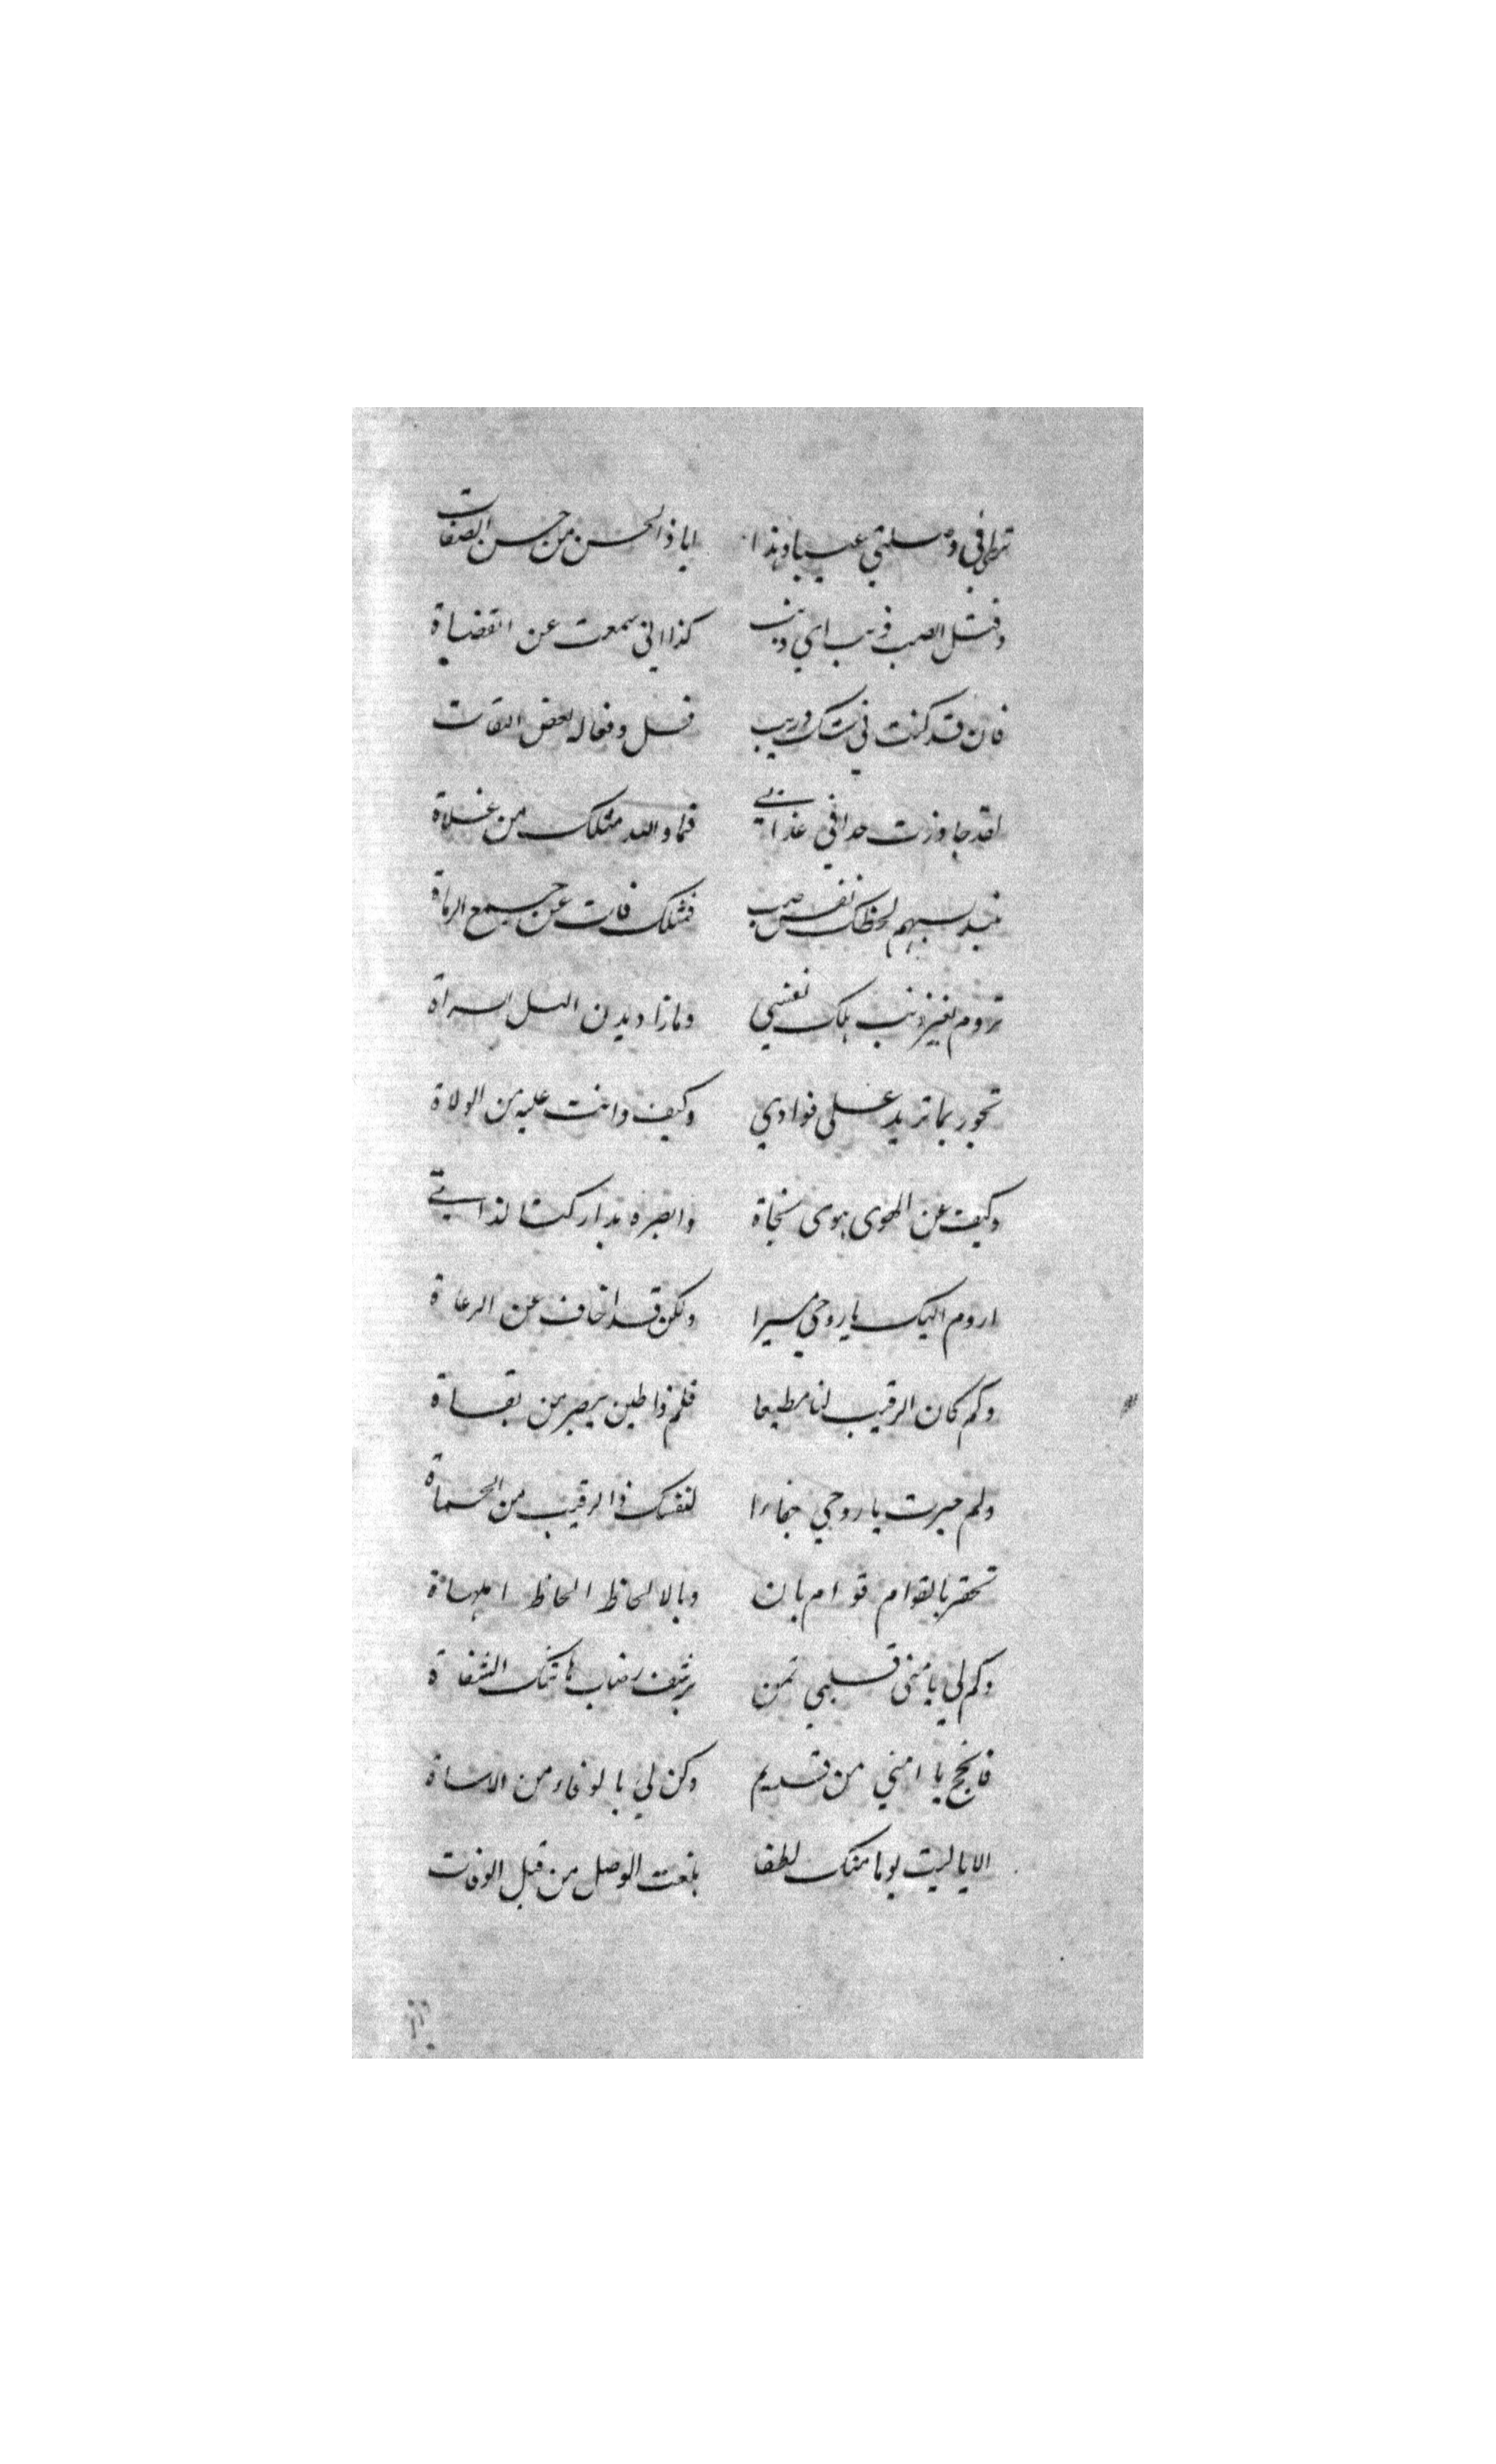 ترى في وصلتي عيبا وهذا ايا ذا الحسن من حسن الصفات
وقتل الصب ذنب اي ذنب كذا اني سمعت عن القضاة
فان قد كنت في شك وريب فسل وفعاله بعض الثقات
لقد جاوزت حدا في عذابي فما والله مثلك من غلاة
بسهم لحظك نفس صب فمثلك فات عن جميع الرماة
تروم بغير ذنب هلك نفسي وماذا ديدن السراة
تجور بما تريد على فوادي وكيف وانت عليه من الولاة
وكيف عن الهوى يهوى نجاة وانصره
اروم اليك يا روحي مسيرا ولكن قد اخاف عن الرعاة
وكم كان الرقيب لنا مطيعا فلم ذا طين يصير من
ولم صيرت يا روحي جهارا لنفسك ذا الرقيب من الحماة
تحقر بالقوام قوام بان وبالالحاظ الحاظ المهاة
وكم لي يا منى قلبي تمن برشف رضاب هاتيك الشفاة
فانجح يا امني من قديم وكن لي بالوفاء من الاساة
الا يا ليت يوما منك لطفا بلغت الوصل من قبل الوفات